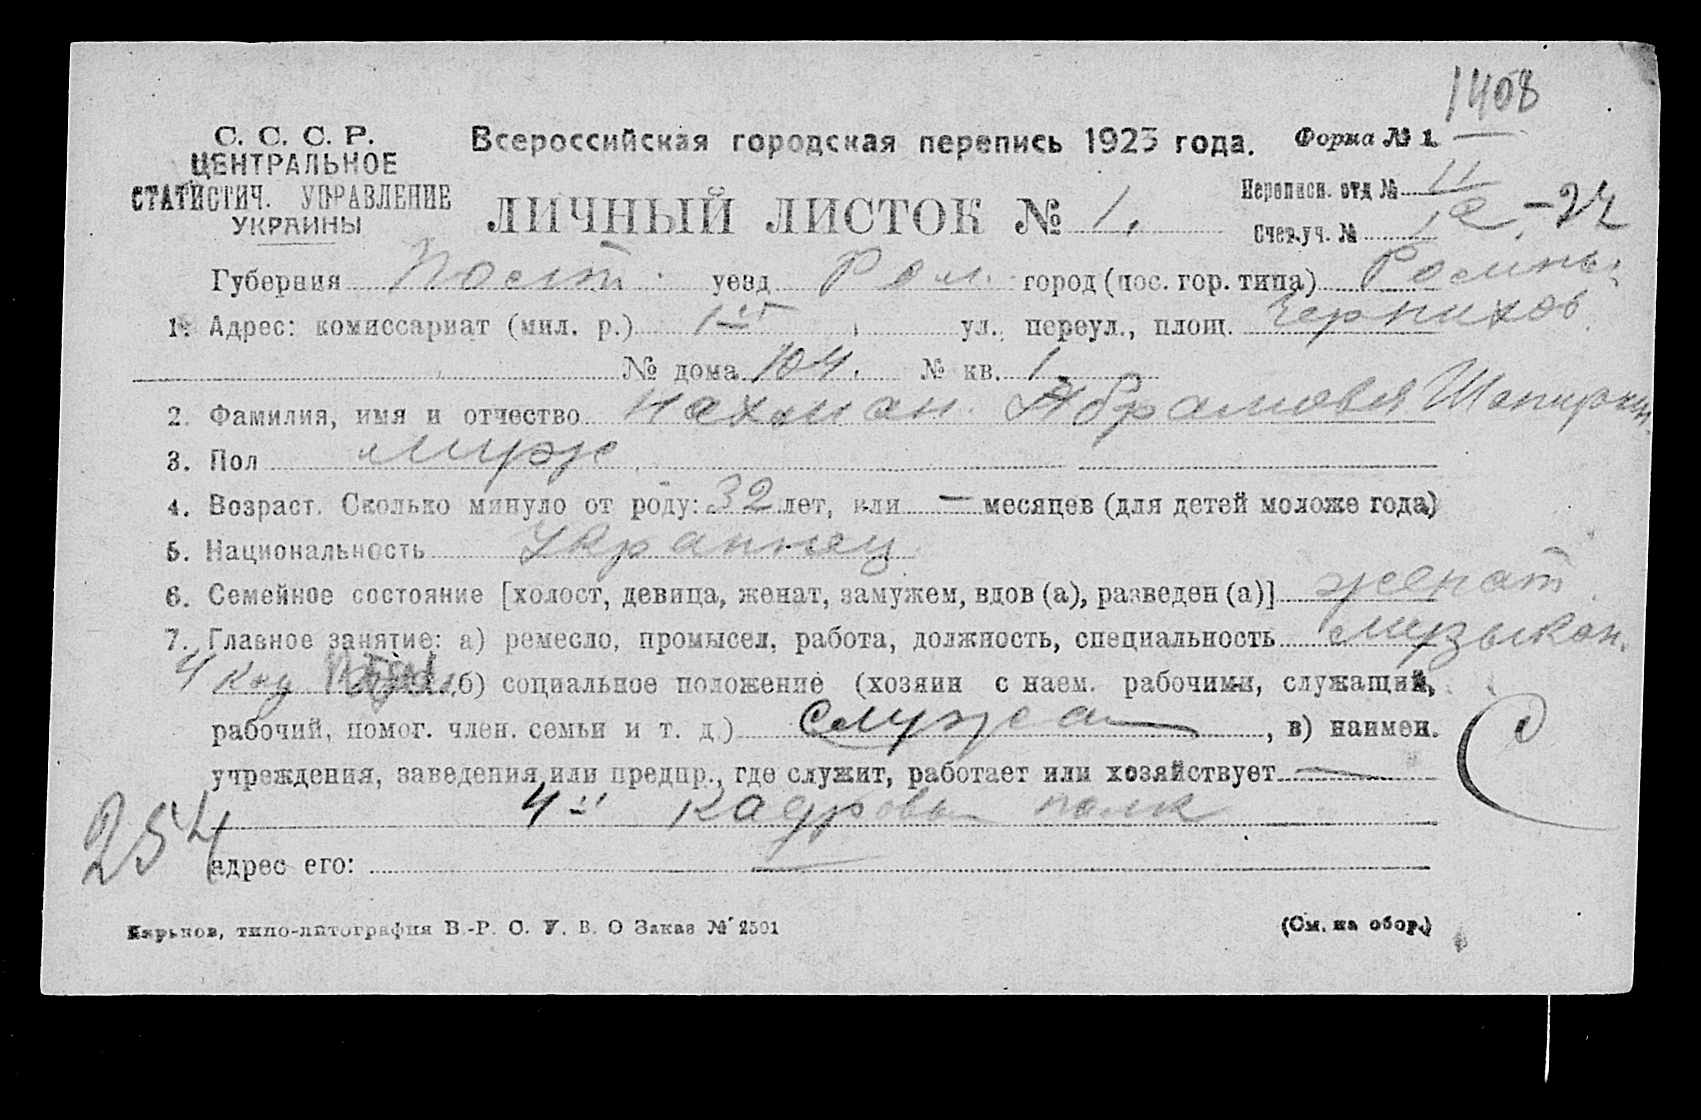 1408
С. С. С. Р.
ЦЕНТРАЛЬНОЕ
СТАТИСТИЧ. УПРАВЛЕНИЕ
УКРАИНЫ
Всероссийская городская перепись 1923 года. Форма № 1.
ЛИЧНЫЙ ЛИСТОК № 1.
Переписн. отд № II
Счетн.уч. № 12-22
Губерния Полт. уезд Ром. город (пос. гор. типа) Ромны.
1. Адрес: комиссариат (мил. р.) 1й ул., переул., площ. Чернихов.
№ дома 104. № кв. 1.
2. Фамилия, имя и отчество Нахман. Абрамовия
3. Пол мужс
4. Возраст. Сколько минуло от роду: 32 лет, или — месяцев (для детей моложе года)
5. Национальность Украинец
6. Семейное состояние [холост, девица, женат, замужем, вдов (а), разведен (а)] женат.
7. Главное занятие: а) ремесло, промысел, работа, должность, специальность музыкан.
4 Кад б) социальное положение (хозяин с наем. рабочими, служащий,
рабочий, помог. член. семьи и т. д.) служа , в) наимен.
учреждения, заведения или предпр., где служит, работает или хозяйствует —
4й Кадровы полк
С
254
адрес его: —
Харьков, типо-литография В.-Р. С. У. В. О Заказ № 2501
(См. на обор.)